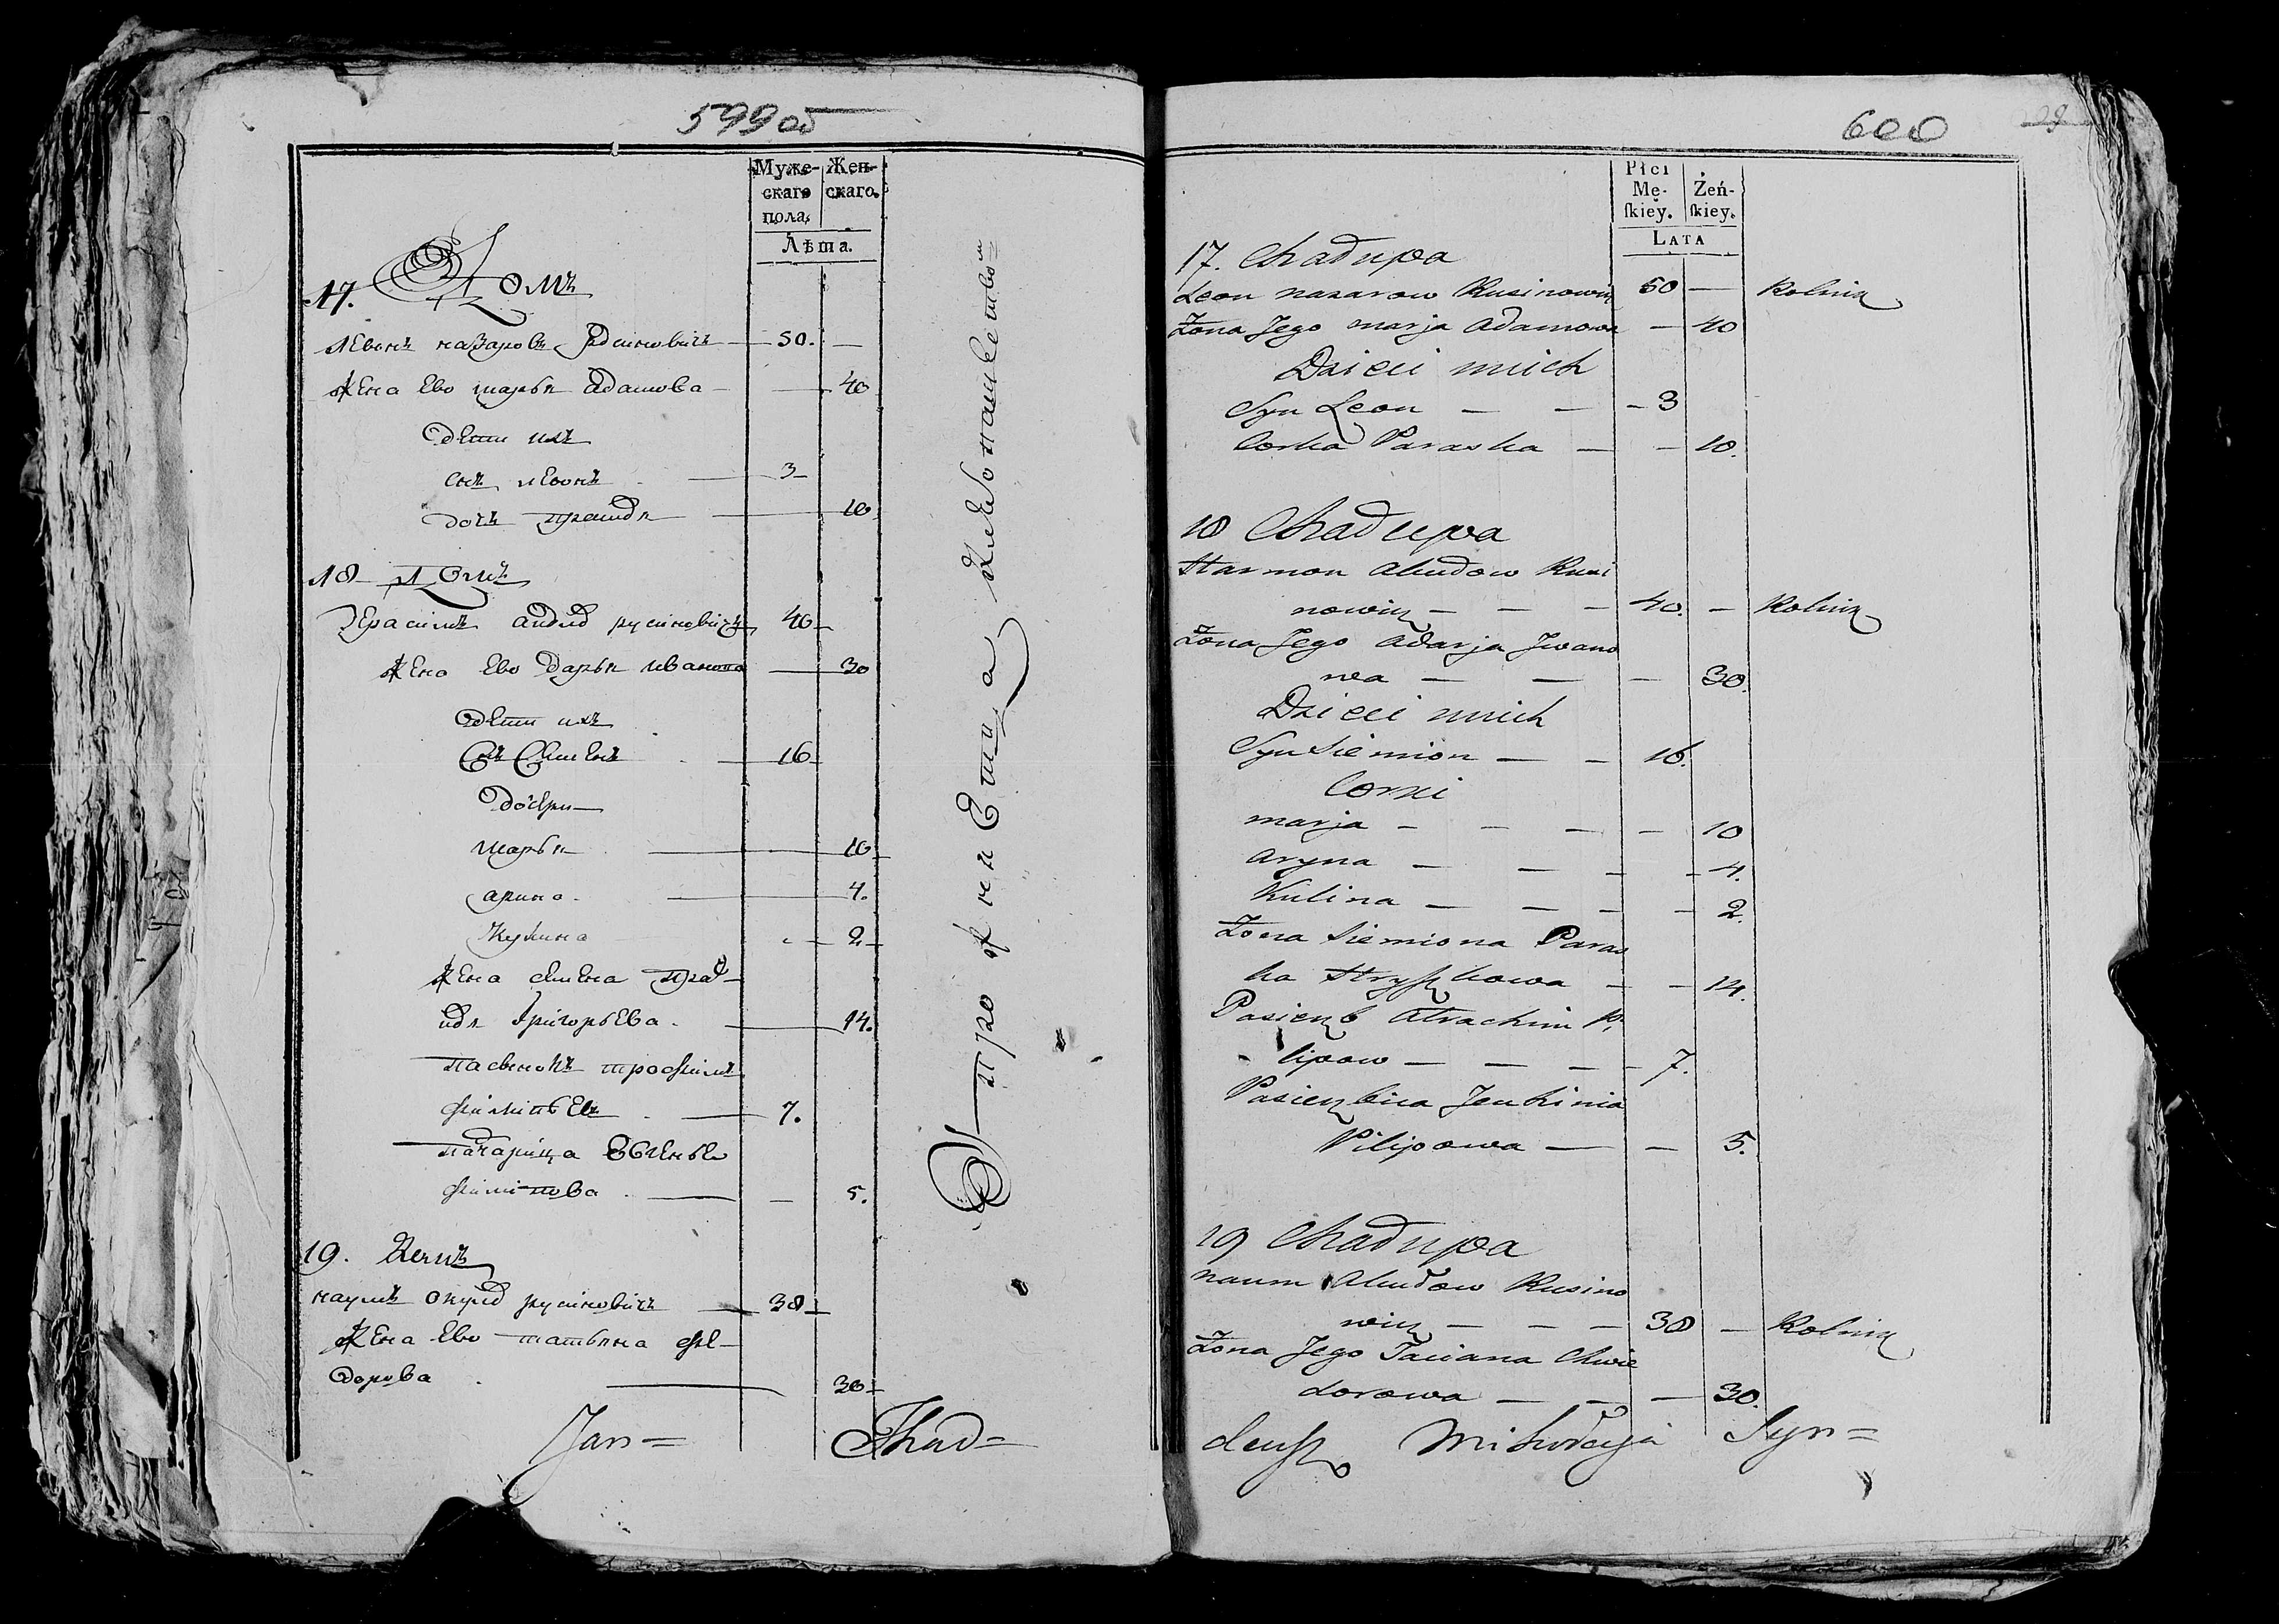 599 об
Муже-
скаго
пола.
Жен-
скаго.
Лѣта.
17. Домъ
левонъ назаровъ — 50. —
жена ево марья адамова — 40
дети ихъ
снъ левонъ — 3
дочь — 10
18 Домъ
Герасимъ русиновичъ 40
жена ево дарья иванова — 30
дети ихъ
Снъ Семенъ — 16
дочери
марья — 10
арина — 4.
Кулина — 2
жена семена пра-
григорьева — 14.
пасынокъ трофимъ
филипьевъ — 7.
падчарица
филипова — 5.
19. Домъ
наумъ русиновичъ — 38
жена ево татьяна фе-
дорова — 30
Пропитание
Jan= Thad=
600
29
Płci
Mę-
ſkiey.
Żeń-
ſkiey.
LATA
17. Chałupa
Leon nazarow Rusinowicz 50 — Rolnik
Żona Jego marja Adamowa — 40
Dzieci wnich
Syn Leon — — 3
Corka Paraska — — 10.
18 Chałupa
Harmon Rusi
nowicz — — — 40. — Rolnik
Żona Jego Adarja Jwano
wa — — — 30.
Dzieci wnich
Syn Siemion — — 16.
Corki
marja — — — — 10
Aryna — — — — 4.
Kulina — — — — 2.
Żona Siemiona Paras
ka — — 14.
Pasierzb Atrachim Pi
lipow — — — — 7.
Pasierzbica Jeuhinia
Pilipowa — — 5.
19 Chałupa
naum Akudow Rusino
wicz — — — 38 — Rolnik
Żona Jego Taciana Chwie
dorowa — — — 30.
deusz Mikołaja Syn=